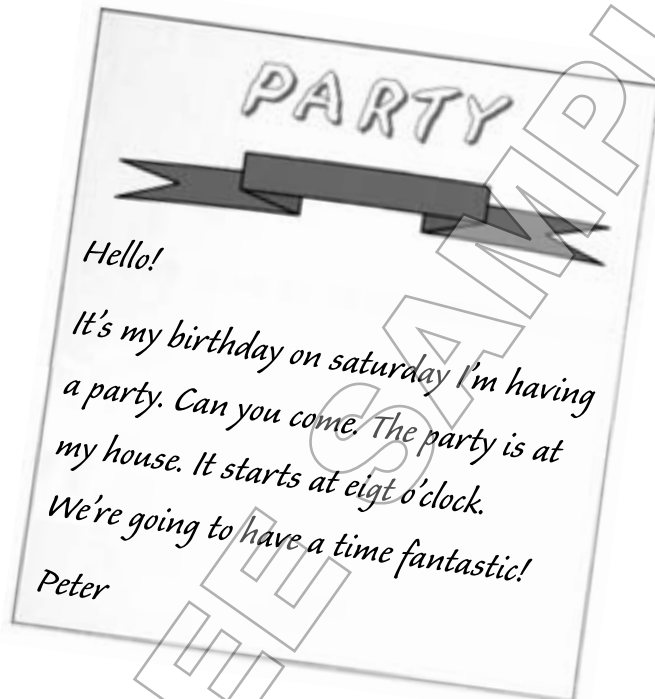 PARTY
Hello!
It's my birthday on saturday I'm having
a party. Can you come. The party is at
my house. It starts at eigt o'clock.
We're going to have a time fantastic!
Peter
EE SAMPL